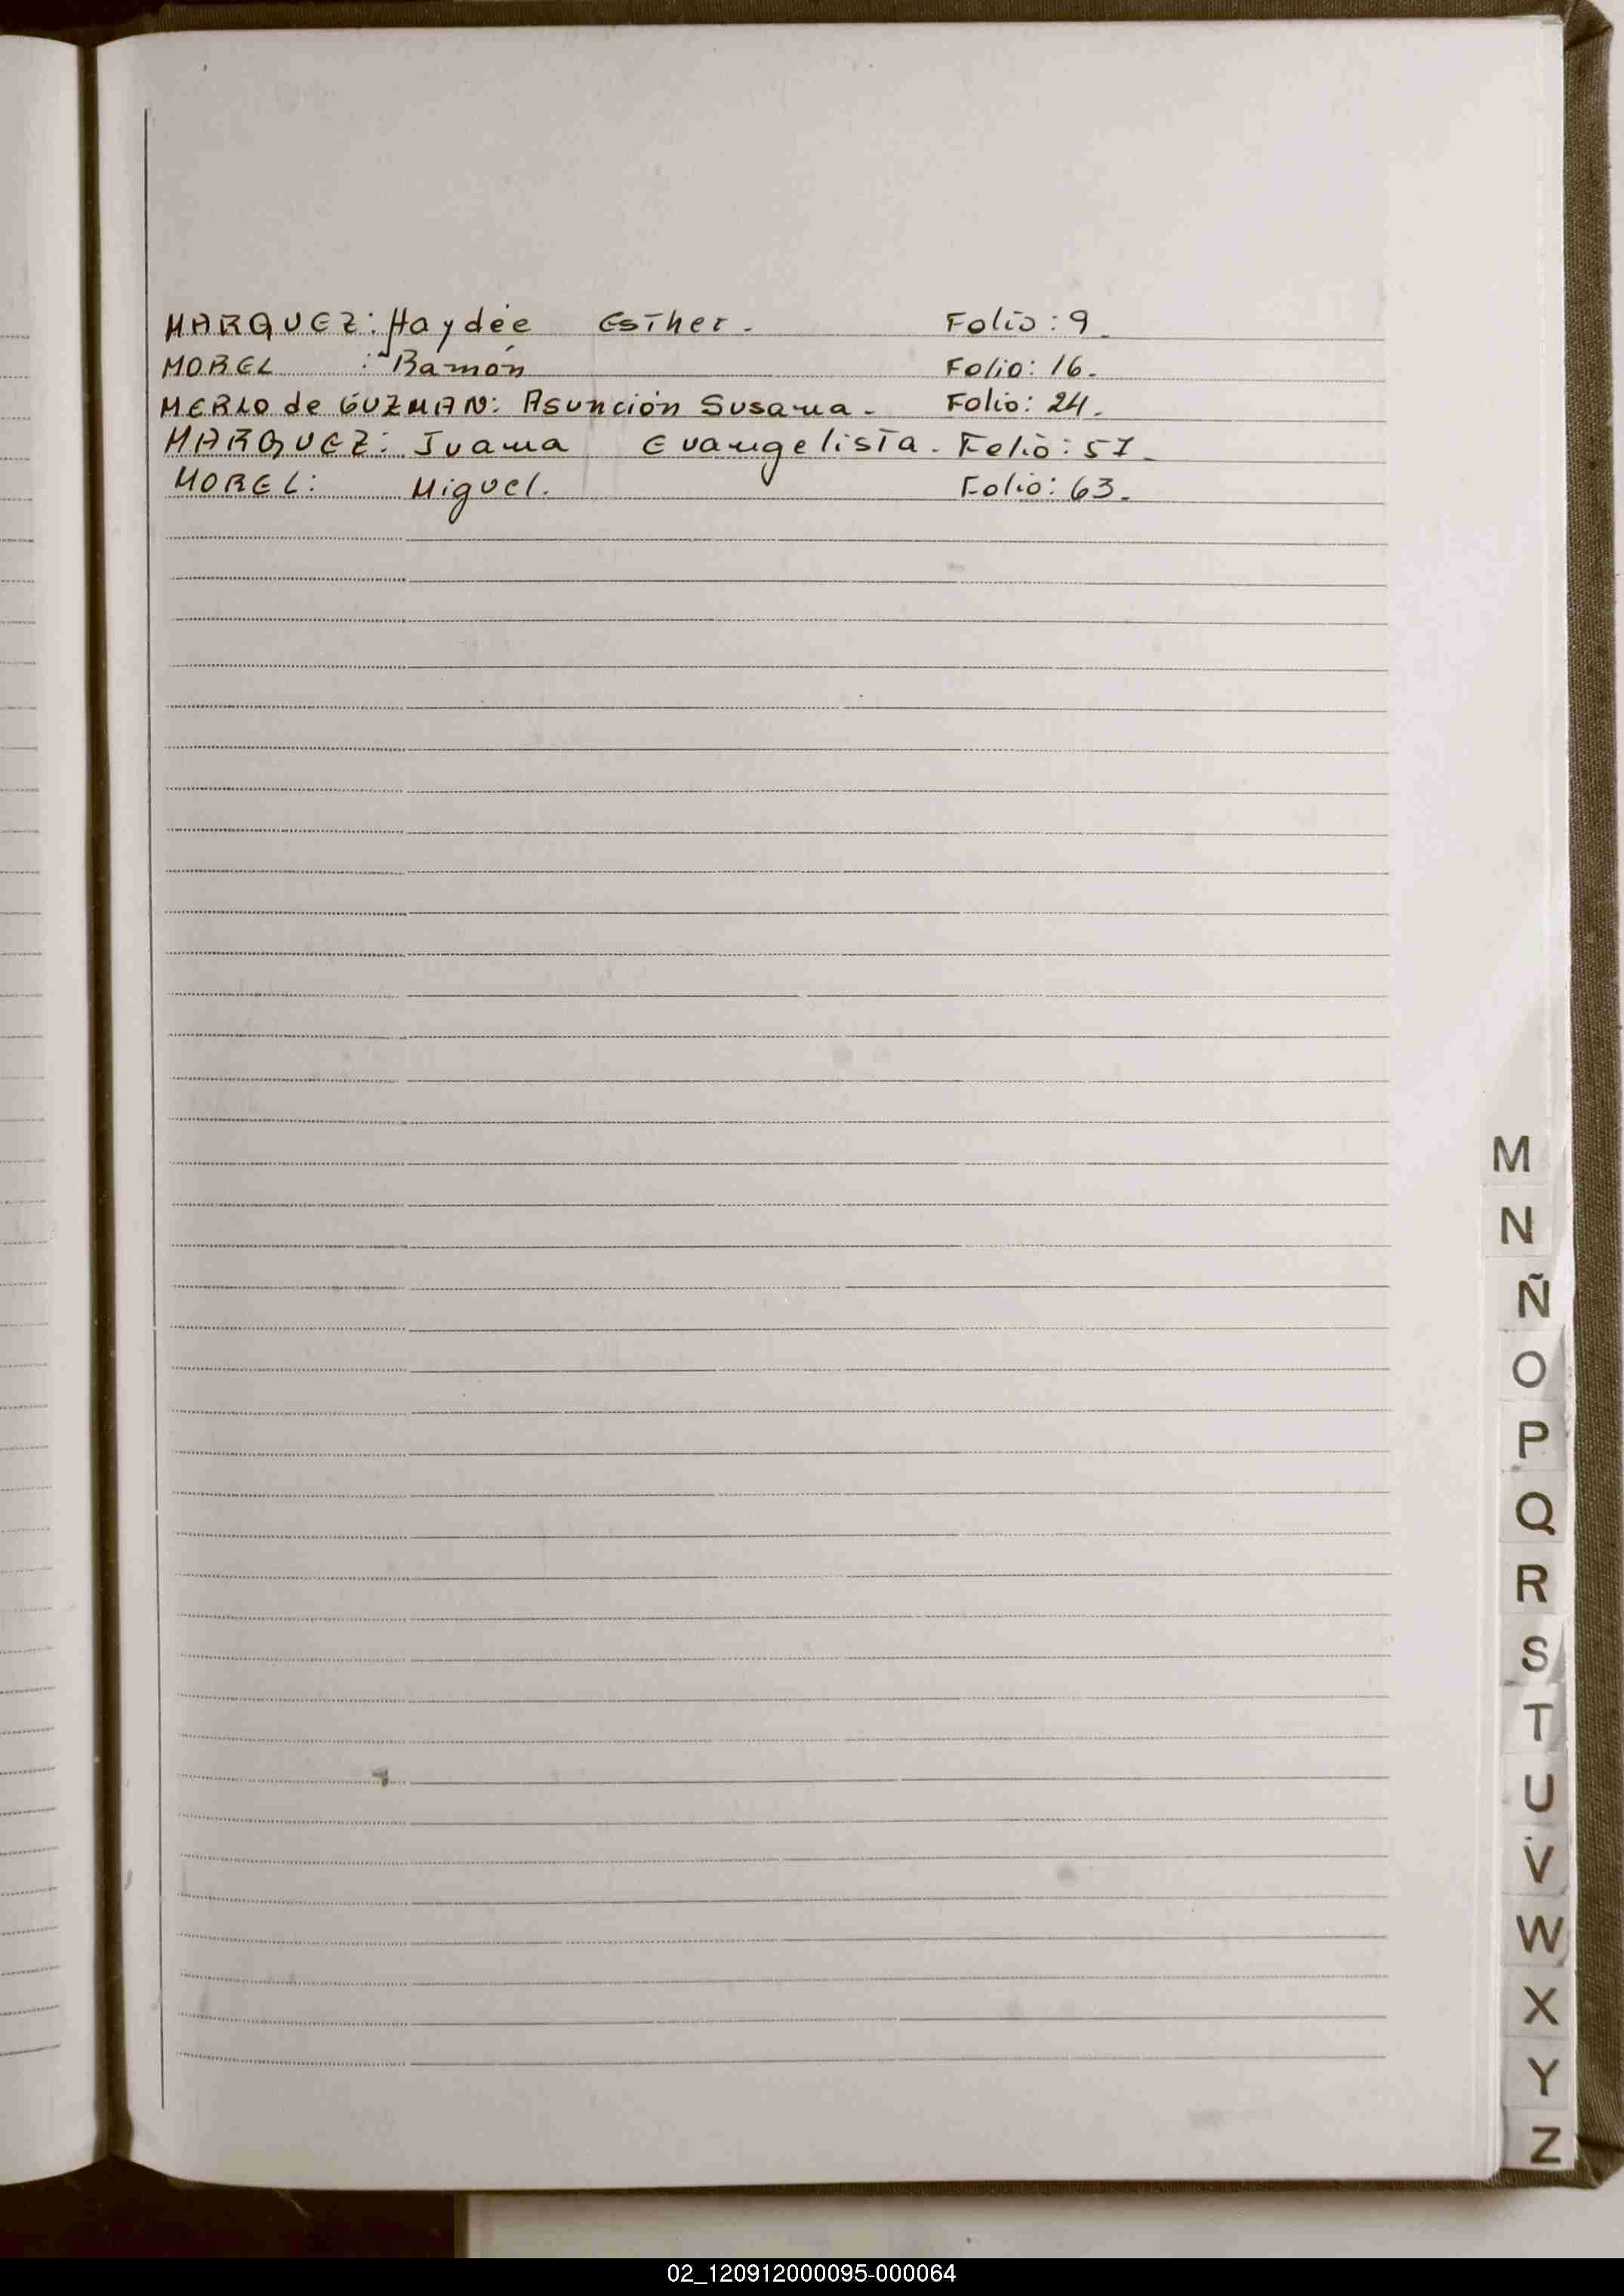 MARQUEZ: Haydée Esther. Folio: 9.
MOREL : Ramón Folio: 16.
MERLO de GUZMAN: Asunción Susana. Folio: 24.
MARQUEZ: Juana Evangelista. Folio: 57.
MOREL: Miguel. Folio: 63.
M
N
Ñ
O
P
Q
R
S
T
U
V
W
X
Y
Z
02_120912000095-000064